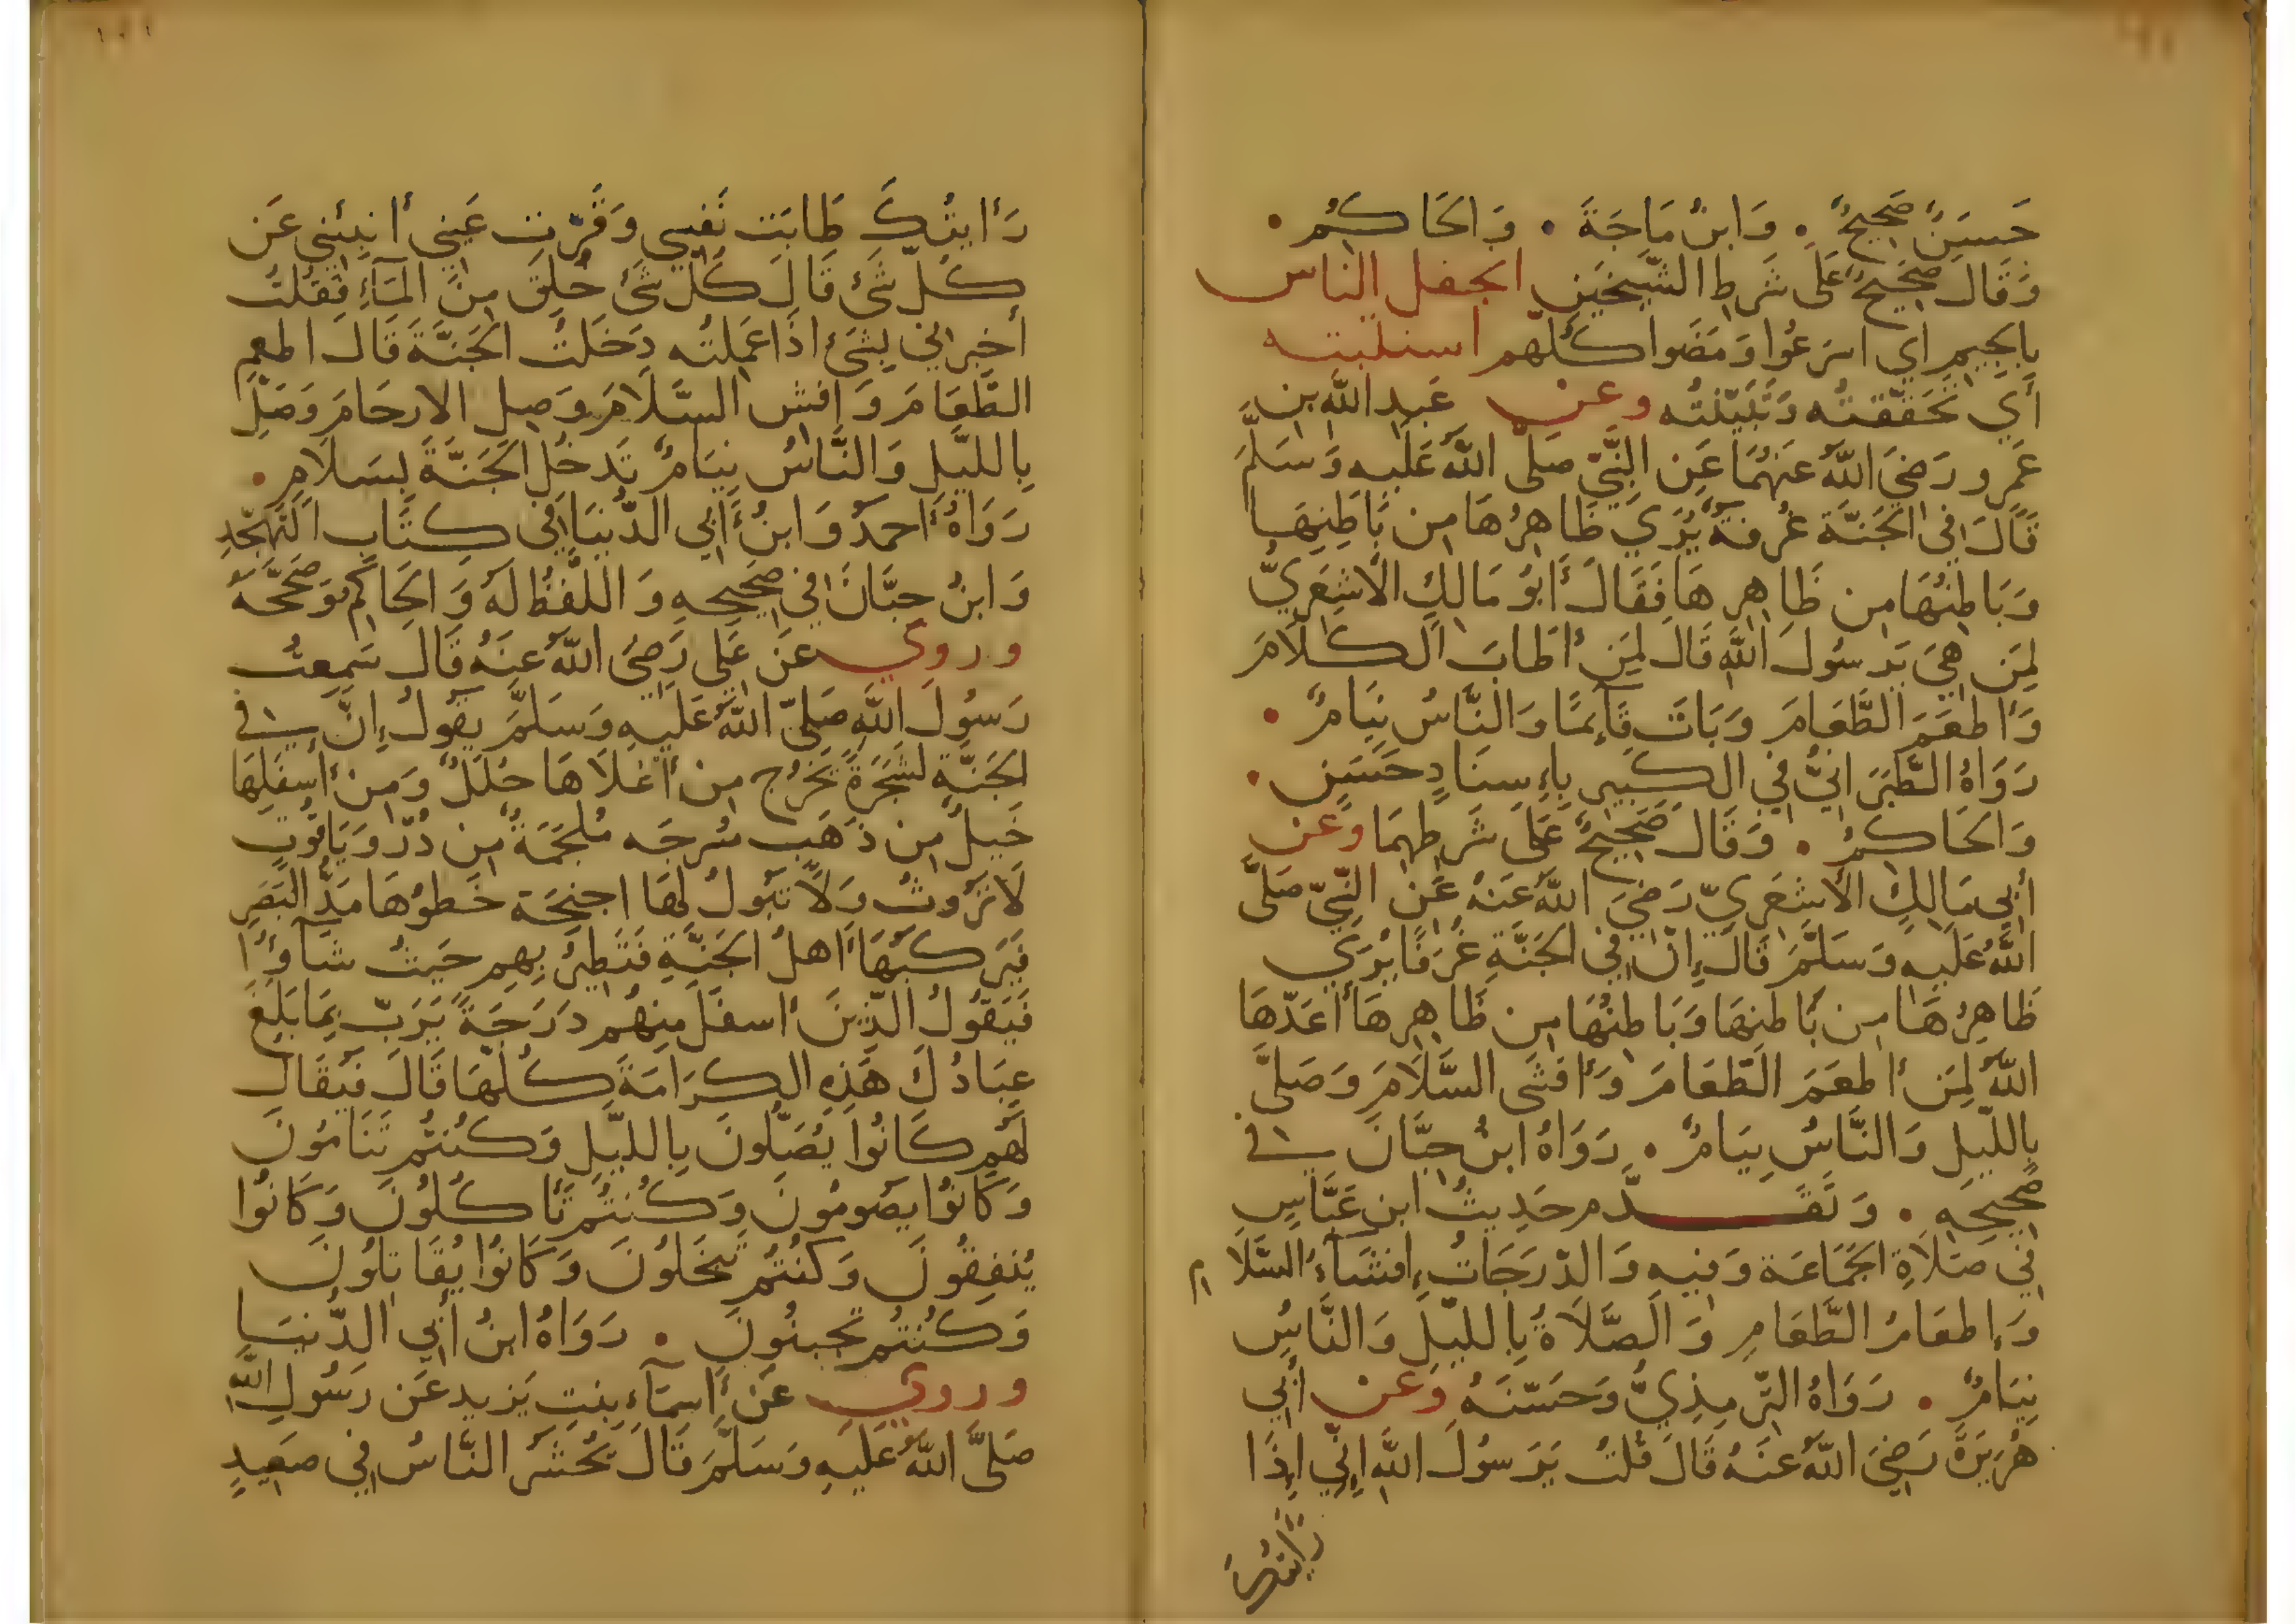 حَسَنٌ صَحِيحٌ . وَابنُ مَاجَةَ . وَالحَاكِمُ .
وَقَالَ صَحِيحٌ عَلَى شَرطِ الشَّيخَينِ انجفل الناس
بِالجِيمِ أي اسرَعُوا وَمَضَوا كُلّهم استثبته
أي تَحَقّقتُه وَتَبَيّنتُه وعن عَبدِ اللهِ بنِ
عَمرو رَضِيَ اللهُ عَنهُمَا عَنِ النَّبِيِّ صَلَّى اللهُ عَلَيهِ وَسَلَّمَ
قَالَ فِي الجَنَّة غُرفَةٌ يُرَي ظَاهِرُهَا مِن بَاطِنِهَا
وَبَاطِنُهَا مِن ظَاهِرِهَا فَقَالَ أَبُو مَالِكٍ الأشعَرِيُّ
لِمَن هِيَ يَرَسُولَ اللَّهِ قَالَ لِمَن أطَابَ الكَلَامَ
وَأطعَمَ الطَّعَامَ وَبَاتَ قَآئِمًا وَالنَّاسُ نِيَامٌ .
رَوَاهُ الطَّبَرَانِيُّ فِي الكَبِيرِ بِإِسنَادٍ حَسَنٍ .
وَالحَاكِمُ . وَقَالَ صَحِيحٌ عَلَى شَرطِهِمَا وعَن
أبِي مَالِكٍ الأشعَرِيّ رَضِيَ اللهُ عَنهُ عَنِ النَّبِيّ صَلَّى
اللهُ عَلَيهِ وَسَلَّمَ قَالَ إِنَّ فِي الجَنَّةِ غُرَفًا يُرَي
ظَاهِرُهَا مِن بَاطِنِهَا وَبَاطِنُهَا مِن ظَاهِرِهَا أعَدّهَا
اللهُ لِمَن أطعَمَ الطَّعَامَ وَأفشَى السَّلَامَ وَصَلَّى
بِاللّيلِ وَالنَّاسُ نِيَامٌ . رَوَاهُ ابنُ حِبَّانَ في
صَحِيحِهِ . وَتَقَدَّم حَدِيثُ ابنِ عَبَّاسٍ
فِي صَلَاةِ الجَمَاعَة وَفِيهِ وَالدّرَجَاتُ إِفشَآءُ السَّلَام
وَإطعَامُ الطَّعَامِ وَالصَّلَاةُ بِاللّيلِ وَالنَّاسُ
نِيَامٌ . رَوَاهُ التِّرمِذِيُّ وَحَسّنَهُ وَعن أَبِي
هُرَيرَةَ رَضِيَ اللهُ عَنهُ قَالَ قُلتُ يَرَسُولَ اللَّهِ إِنِّي إِذَا
رَأَيتُكَ
رَأيتُكَ طَابَت نَفسِي وَقَرّت عَينِي أنبِئنِي عَن
كُلِّ شَئ قَالَ كُلّ شَئ خُلِقَ مِنَ المَآءِ فَقُلتُ
أخبِرنِي بِشَئ اذَا عَمِلتُه دَخَلتُ الجَنَّةَ قَالَ اطعِمِ
الطَّعَامَ وَافشِ السَّلَامَ وَصِلِ الارحَامَ وَصَلِّ
بِاللَّيلِ وَالنَّاسُ نِيَامٌ تَدخُلِ الجَنَّةَ بِسَلَامٍ .
رَوَاهُ أَحمدُ وَابنُ أَبِي الدُّنيَا فِي كِتَابِ التَّهَجُّدِ
وَابنُ حِبَّانَ فِي صَحِيحِهِ وَاللّفظُ لَهُ وَالحَاكِمُ وَصَحَّحَهُ
وروي عَن عَلِي رَضِيَ اللهُ عَنهُ قَالَ سَمِعتُ
رَسُولَ اللَّهِ صَلَّى اللهُ عَلَيهِ وَسَلَّمَ يَقُولُ إِنَّ في
الجَنَّةِ لَشَجَرَةً تَخرُج مِن أعلَاهَا حُلَلٌ وَمِن أَسفَلِهَا
خَيلٌ مِن ذَهَب مُسرجَه مُلجَمَةٌ مِن دُرّ وَيَاقُوتٍ
لَا تَرُوثُ وَلَا تَبُولُ لَهَا اجنِحَة خَطوُهَا مَدُّ البَصَرِ
فَيَركَبُهَا أَهلُ الجَنَّةِ فَتَطِيرُ بِهِم حَيثُ شَآؤُا
فَيَقُولُ الَّذِينَ أسفَلَ مِنهُم دَرَجَةً يَرَبّ بِمَا بَلَغَ
عِبَادُكَ هَذِهِ الكَرَامَةَ كُلّهَا قَالَ فَيُقَالُ
لَهُم كَانُوا يُصَلُّونَ بِاللَّيلِ وَكُنتُم تَنَامُونَ
وَكَانُوا يَصُومُونَ وَكُنتُم تَأكُلُونَ وَكَانُوا
يُنفِقُونَ وَكُنتُم تَبخَلُونَ وَكَانُوا يُقَاتِلُونَ
وَكُنتُم تَجبنُونَ . رَوَاهُ ابنُ أَبِي الدُّنيَا
وروي عَن أَسمَآءِ بِنتِ يَزيد عَن رَسُولِ اللهِ
صَلَّى اللهُ عَلَيهِ وَسَلَّمَ قَالَ يُحشَر النَّاسُ فِي صَعِيدٍ